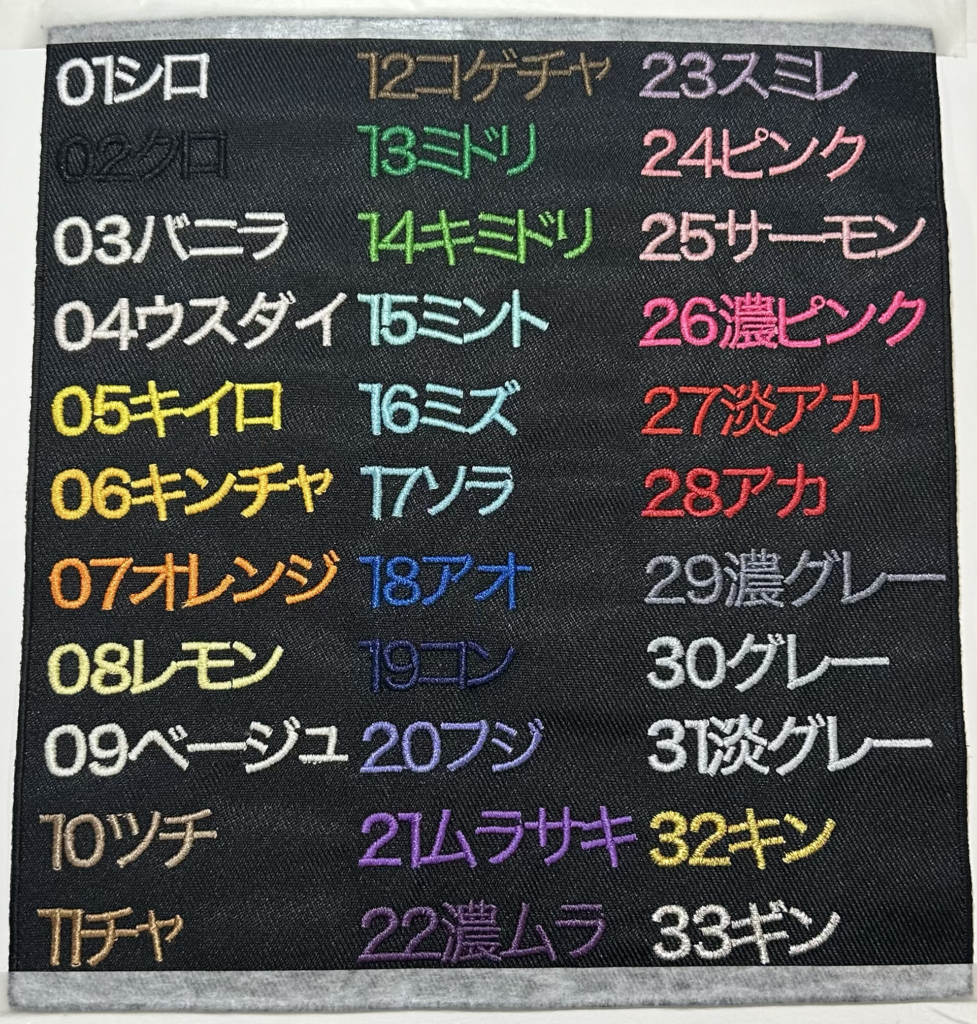 01シロ
02クロ
03バニラ
04ウスダイ
05キイロ
06キンチャ
07オレンジ
08レモン
09ベージュ
10ツチ
11チャ
12コゲチャ
13ミドリ
14キミドリ
15ミント
16ミズ
17ソラ
18アオ
19コン
20フジ
21ムラサキ
22濃ムラ
23スミレ
24ピンク
25サーモン
26濃ピンク
27淡アカ
28アカ
29濃グレー
30グレー
31淡グレー
32キン
33ギン